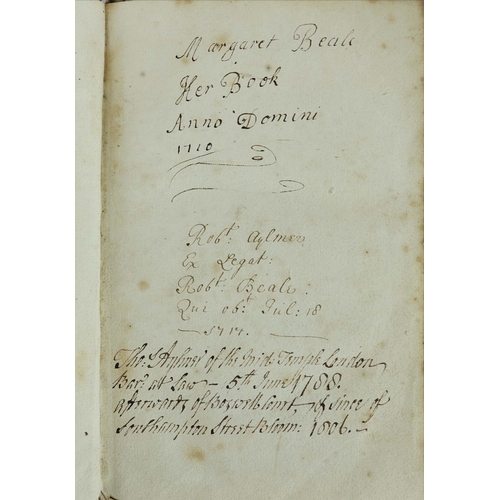 Margaret Beale
Her Book
Anno Domini
1710
Robt: Aylmer
Ex Legat:
Robt: Beale:
Qui obt Jul: 18
Thos Aylmer of the Midd Temple London
Barr at Law - 5th June 1788
afterwards of Boswell Court, & since of
Southampton Street Bloom: 1806.